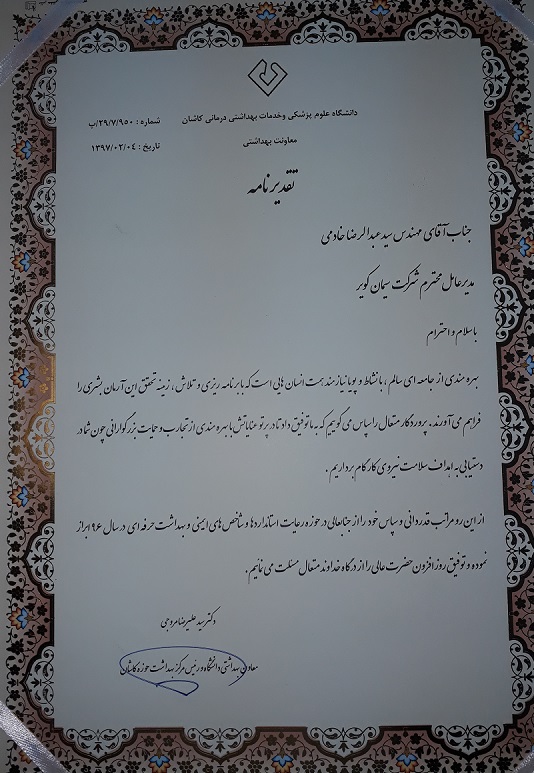 دانشگاه علوم پزشکی وخدمات بهداشتی درمانی کاشان
شماره : ۲۹/۷/۹۵۰/ب
معاونت بهداشتی
تاریخ : ۱۳۹۷/۰۲/۰۴
تقدیرنامه
جناب آقای مهندس سید عبدالرضا خادمی
مدیر عامل محترم شرکت سیمان کویر
باسلام و احترام
بهره مندی از جامعه ای سالم ، بانشاط و پویا نیازمند همت انسان هایی است که با برنامه ریزی و تلاش ، زمینه تحقق این آرمان بشری را
فراهم می آورند . پروردگار متعال را سپاس می گوییم که به ما توفیق داد تا در پرتو عنایاتش با بهره مندی از تجارب و حمایت بزرگوارانی چون شما در
دستیابی به اهداف سلامت نیروی کار گام برداریم .
از این رو مراتب قدردانی و سپاس خود را از جنابعالی در حوزه رعایت استانداردها و شاخص های ایمنی و بهداشت حرفه ای در سال ۹۶ ابراز
نموده و توفیق روز افزون حضرت عالی را از درگاه خداوند متعال مسئلت می نمائیم .
دکتر سید علیرضا مروجی
معاون بهداشتی دانشگاه و رئیس مرکز بهداشت حوزه کاشان